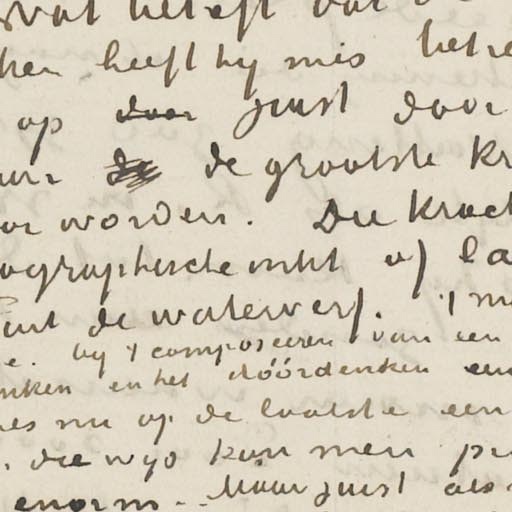 wat betreft
heeft hij mis
op door juist door
de grootste
worden. Die krac
ographische inkt of la
de waterverf. 't
bij 't composeeren van een
nken en het dóórdenken een
nu op de laatste een
die wijs kan men
enorm. Maar juist als